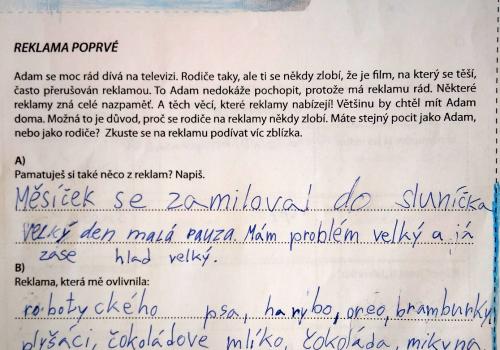 REKLAMA POPRVÉ
Adam se moc rád dívá na televizi. Rodiče taky, ale ti se někdy zlobí, že je film, na který se těší,
často přerušován reklamou. To Adam nedokáže pochopit, protože má reklamu rád. Některé
reklamy zná celé nazpaměť. A těch věcí, které reklamy nabízejí! Většinu by chtěl mít Adam
doma. Možná to je důvod, proč se rodiče na reklamy někdy zlobí. Máte stejný pocit jako Adam,
nebo jako rodiče? Zkuste se na reklamu podívat víc zblízka.
A)
Pamatuješ si také něco z reklam? Napiš.
Měsíček se zamiloval do sluníčka
velký den malá pauza. Mám problém velký a já
zase hlad velký.
B)
Reklama, která mě ovlivnila:
robotyckého psa, harybo, oreo, bramburky,
plyšáci, čokoládove mlíko, čokoláda, mikyna